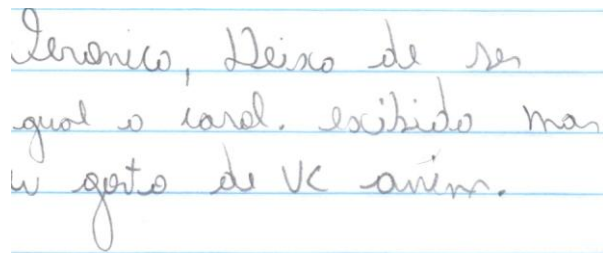 Veronica, Deixa de ser
igual a carol. exibida mas
eu gosto de vc assim.